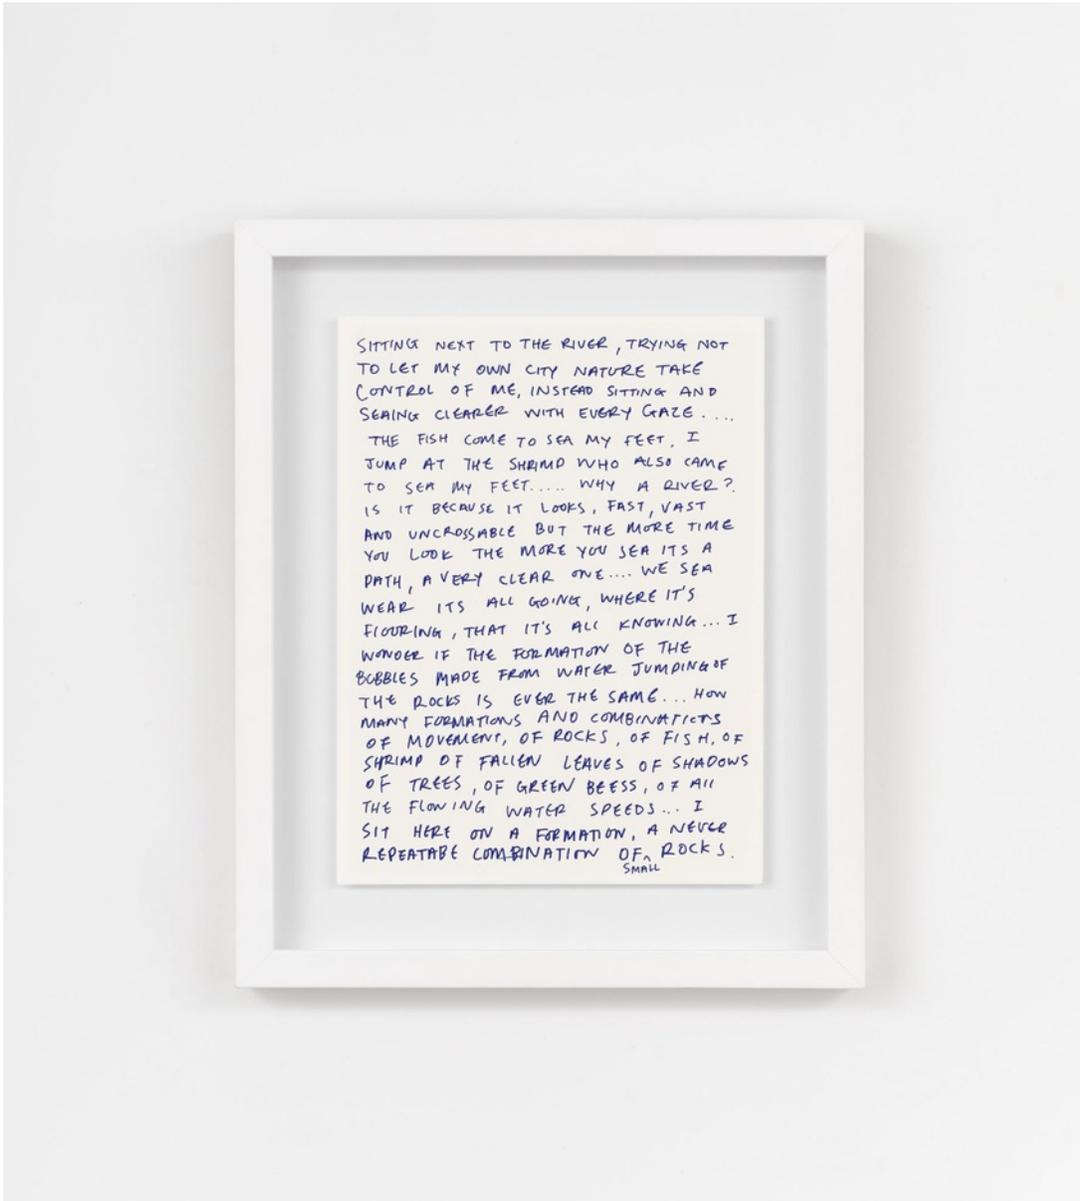 SITTING NEXT TO THE RIVER, TRYING NOT
TO LET MY OWN CITY NATURE TAKE
CONTROL OF ME, INSTEAD SITTING AND
SEAING CLEARER WITH EVERY GAZE....
THE FISH COME TO SEA MY FEET. I
JUMP AT THE SHRIMP WHO ALSO CAME
TO SEA MY FEET..... WHY A RIVER?.
IS IT BECAUSE IT LOOKS, FAST, VAST
AND UNCROSSABLE BUT THE MORE TIME
YOU LOOK THE MORE YOU SEA ITS A
PATH, A VERY CLEAR ONE.... WE SEA
WEAR ITS ALL GOING, WHERE IT'S
FLOURING, THAT IT'S ALL KNOWING... I
WONDER IF THE FORMATION OF THE
BUBBLES MADE FROM WATER JUMPING OF
THE ROCKS IS EVER THE SAME... HOW
MANY FORMATIONS AND COMBINATIONS
OF MOVEMENT, OF ROCKS, OF FISH, OF
SHRIMP OF FALLEN LEAVES OF SHADOWS
OF TREES, OF GREEN BEESS, OF All
THE FLOWING WATER SPEEDS... I
SIT HERE ON A FORMATION, A NEVER
REPEATABE COMBINATION OF^ ROCKS.
SMALL